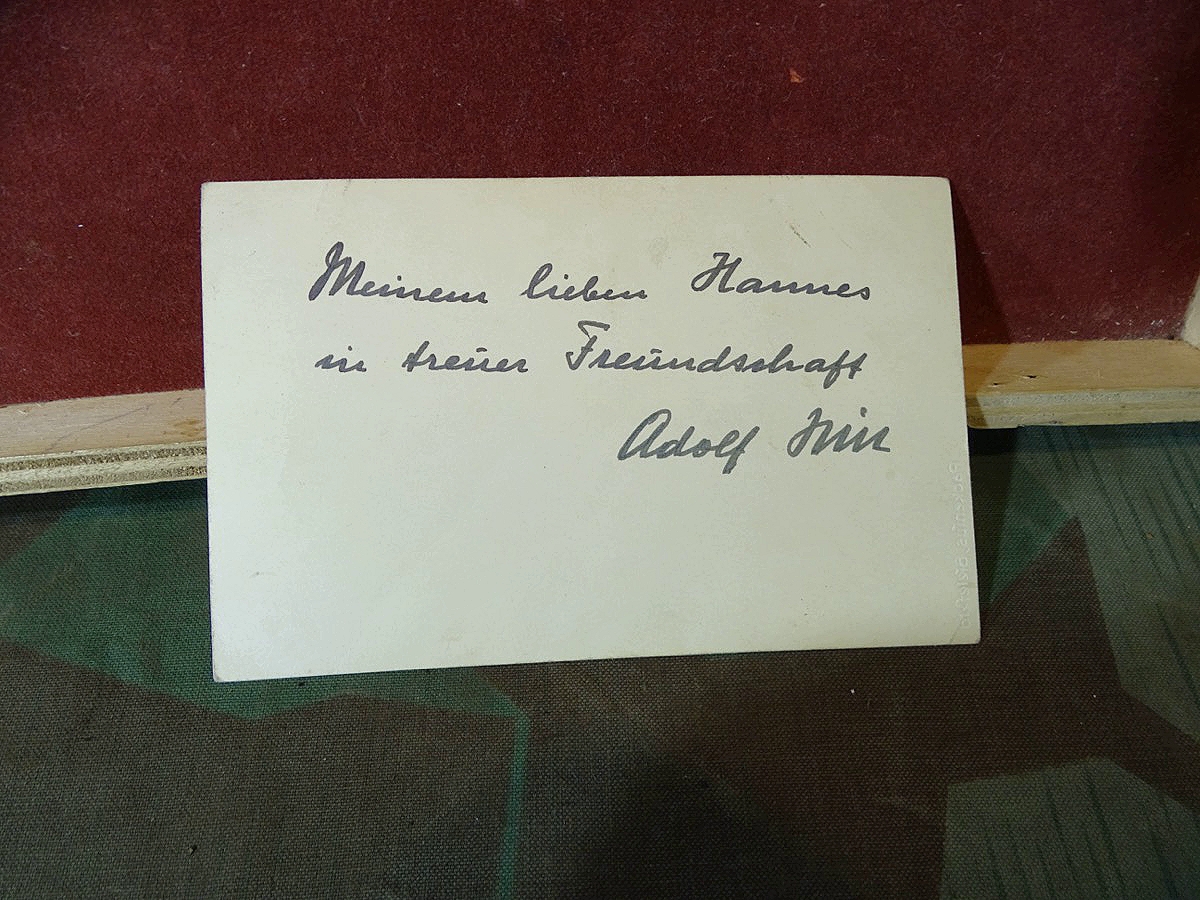 Meinem lieben Hannes
in treuer Freundschaft
Adolf